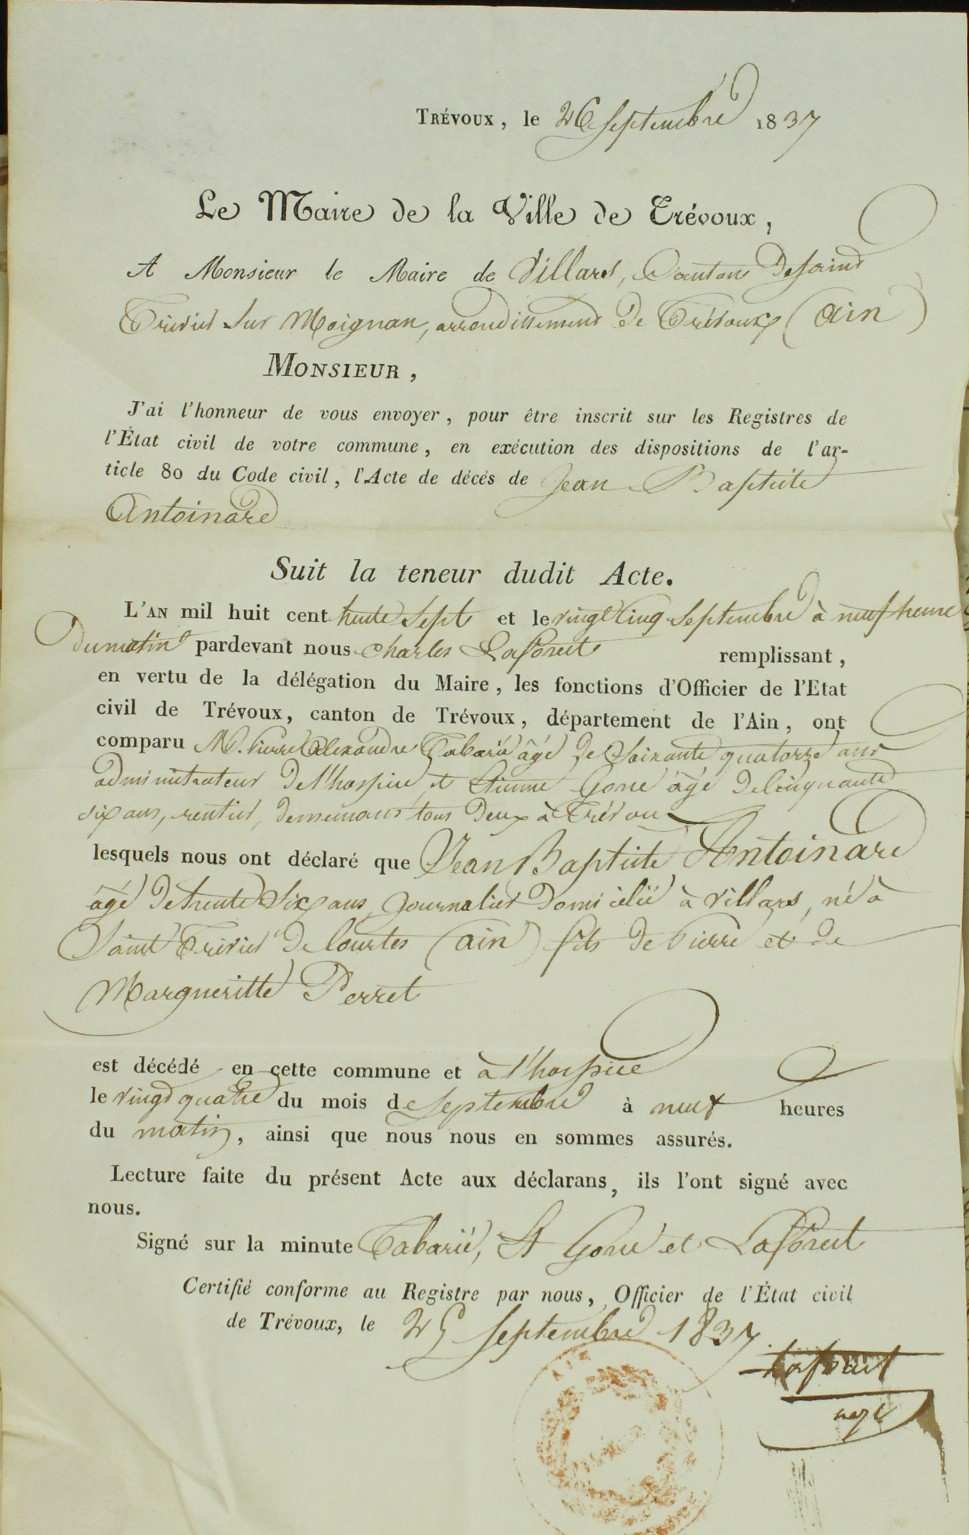 TRÉVOUX, le 26 septembre 1837
Le Maire de la Ville de Trévoux,
A Monsieur le Maire de Villars, Canton De Saint
Trivier Sur Moignan, arrondissement De Trévoux (ain)
MONSIEUR,
J'ai l'honneur de vous envoyer, pour être inscrit sur les Registres de
l'État civil de votre commune, en exécution des dispositions de l'ar-
ticle 80 du Code civil, l'Acte de décés de Jean Baptiste
Antoinard
Suit la teneur dudit Acte.
L'AN mil huit cent trente Sept et le vingt Cinq Septembre à neuf heure
Du matin pardevant nous Charles Laforest remplissant,
en vertu de la délégation du Maire, les fonctions d'Officier de l'Etat
civil de Trévoux, canton de Trévoux, département de l'Ain, ont
comparu M. Pierre Alexandre Tabarié âgé De Soixante quatorze ans
administrateur De l'hospice et Etienne Gorie âgé De Cinquante
six ans, rentier, demeurans tous Deux à Trévoux
lesquels nous ont déclaré que Jean Baptiste Antoinard
âgé De trente Six ans, Journalier Domicilié à Villars, né à
Saint Trivier De Courtes (ain) fils de Pierre et de
Margueritte Perret
est décédé en cette commune et à l'hospice
le vingt quatre du mois de Septembre à neuf heures
du matin, ainsi que nous nous en sommes assurés.
Lecture faite du présent Acte aux déclarans, ils l'ont signé avec
nous.
Signé sur la minute Tabarié, Et Gorié et Laforest
Certifié conforme au Registre par nous, Officier de l'État civil
de Trévoux, le 25 Septembre 1837
Laforest